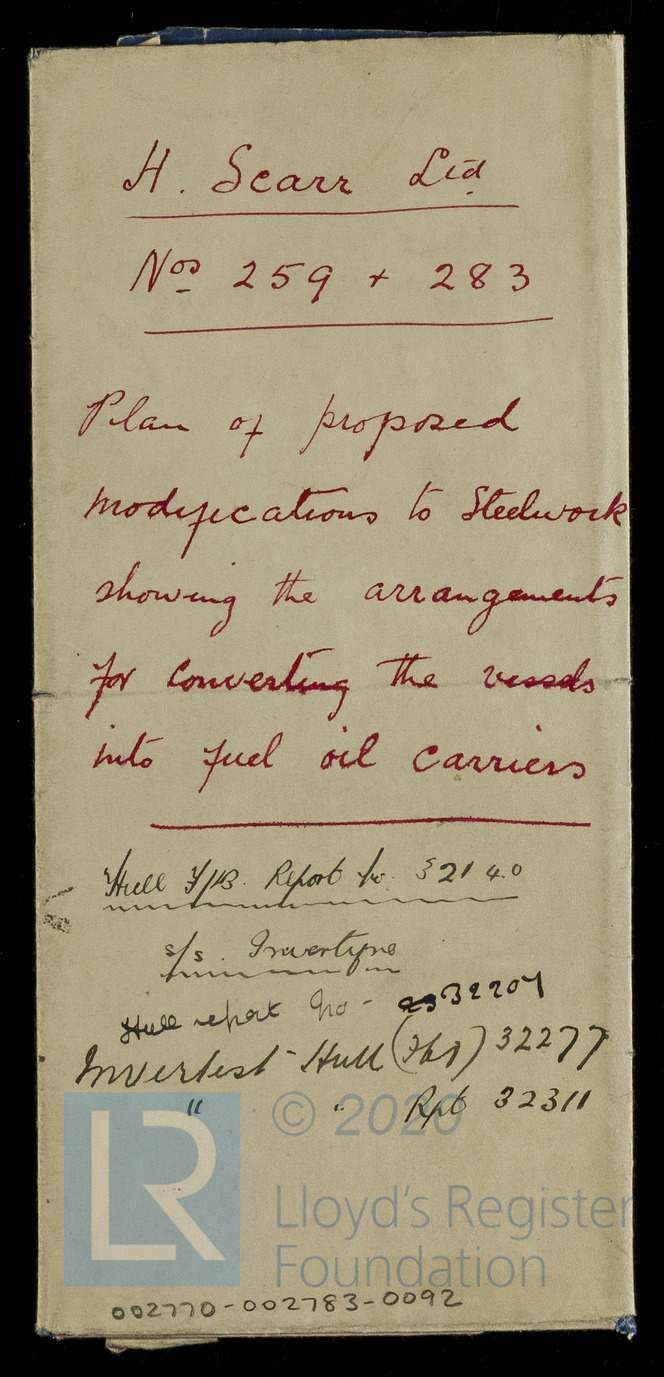 H. Scarr Ltd
Nos 259 + 283
Plan of proposed
modifications to Steelwork
showing the arrangements
for converting the vessels
into fuel oil carriers
Hull F/B. Report No. 32140
s/s. Invertyne
Hull report No - 32207
Invertest - Hull (Fbd) 32277
" " Rpt 32311
© 2020
LR
Lloyd's Register
Foundation
002770-002783-0092